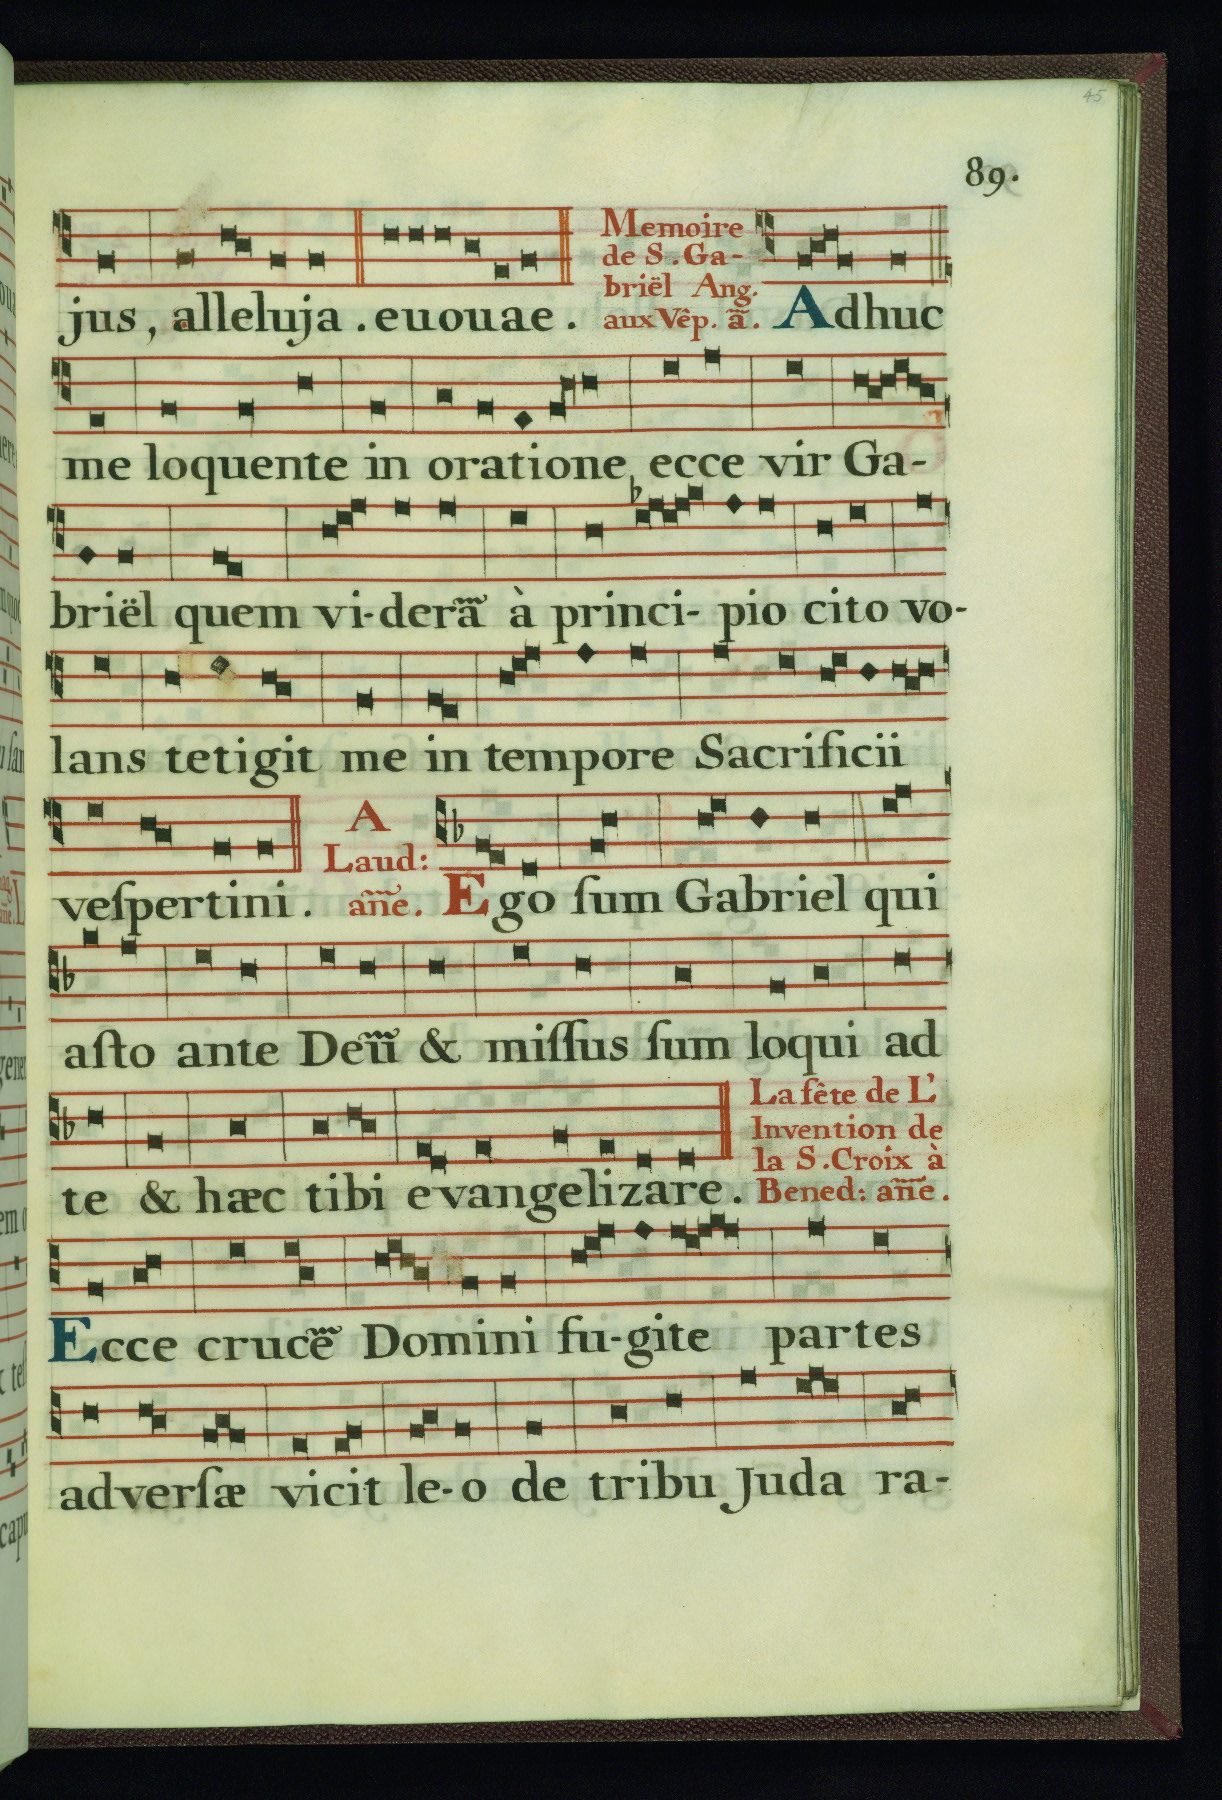 45
89.
Memoire
de S. Ga-
briël Ang.
jus, alleluja. euouae. aux Vêp. ã. Adhuc
me loquente in oratione, ecce vir Ga-
briël quem vi-derã à princi-pio cito vo-
lans tetigit me in tempore Sacrificii
A
Laud:
veſpertini. añe. Ego ſum Gabriel qui
aſto ante Deũ & miſſus ſum loqui ad
La fête de L'
Invention de
la S. Croix à
te & hæc tibi evangelizare. Bened: añe.
Ecce crucẽ Domini fu-gite partes
adverſæ vicit le-o de tribu Juda ra-